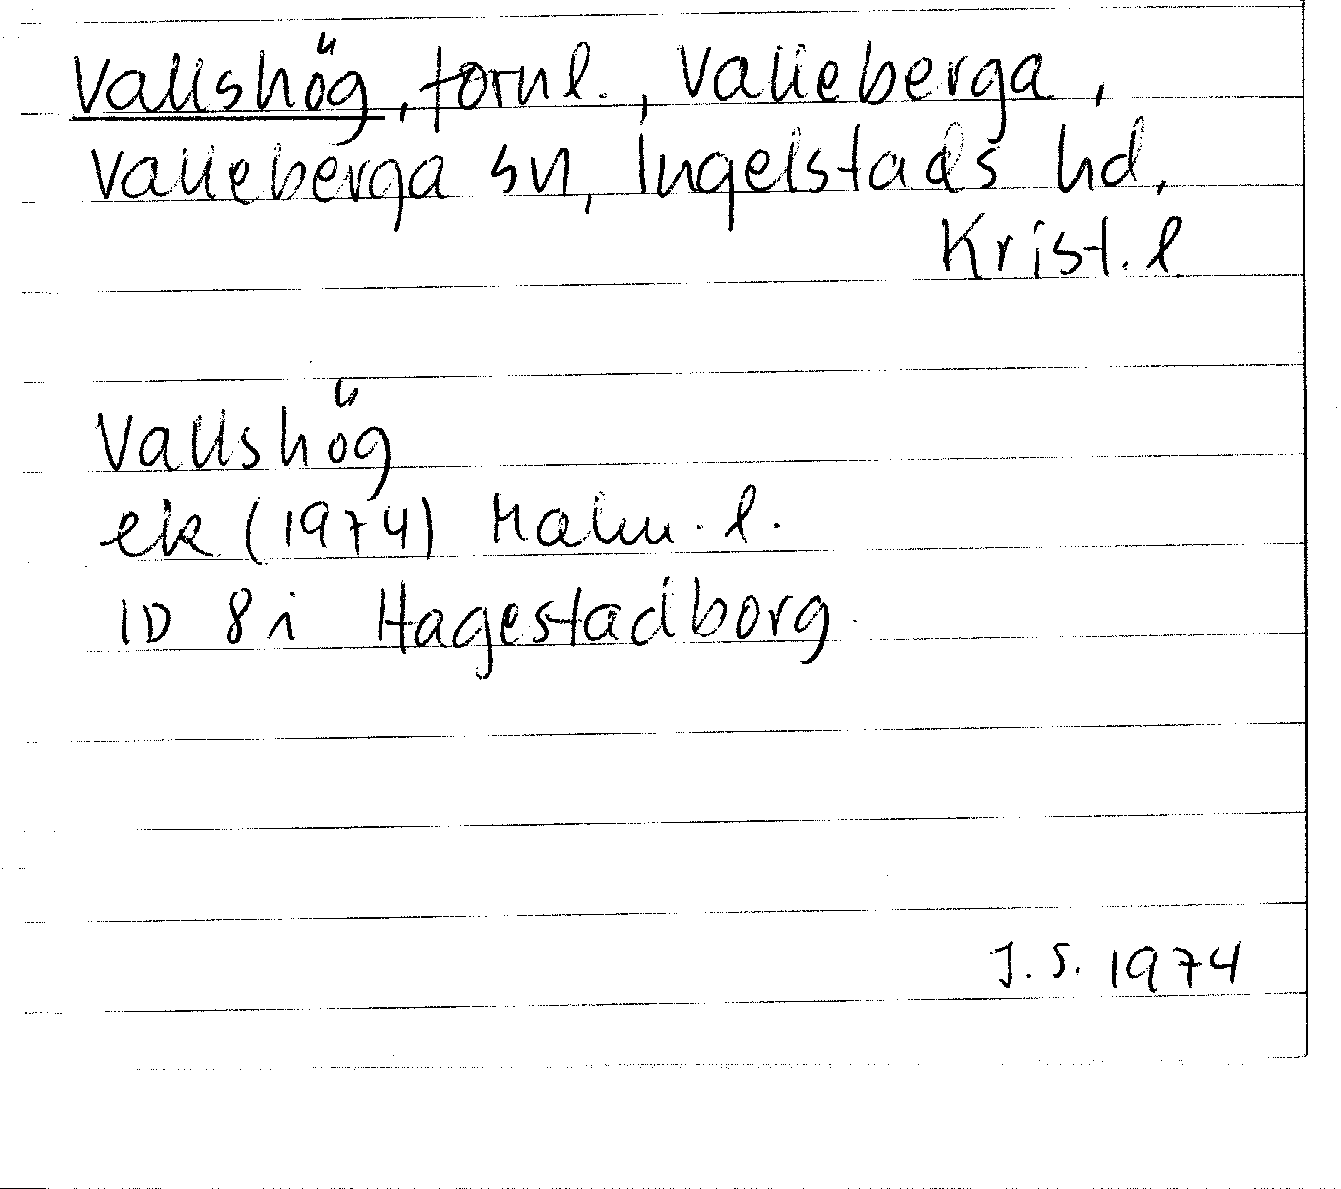 Vallshög, fornl., Valleberga,
Valleberga sn, Ingelstads hd,
Krist. l
Vallshög
ek (1974) Malm. l.
1D 8 i Hagestadborg.
J. S. 1974